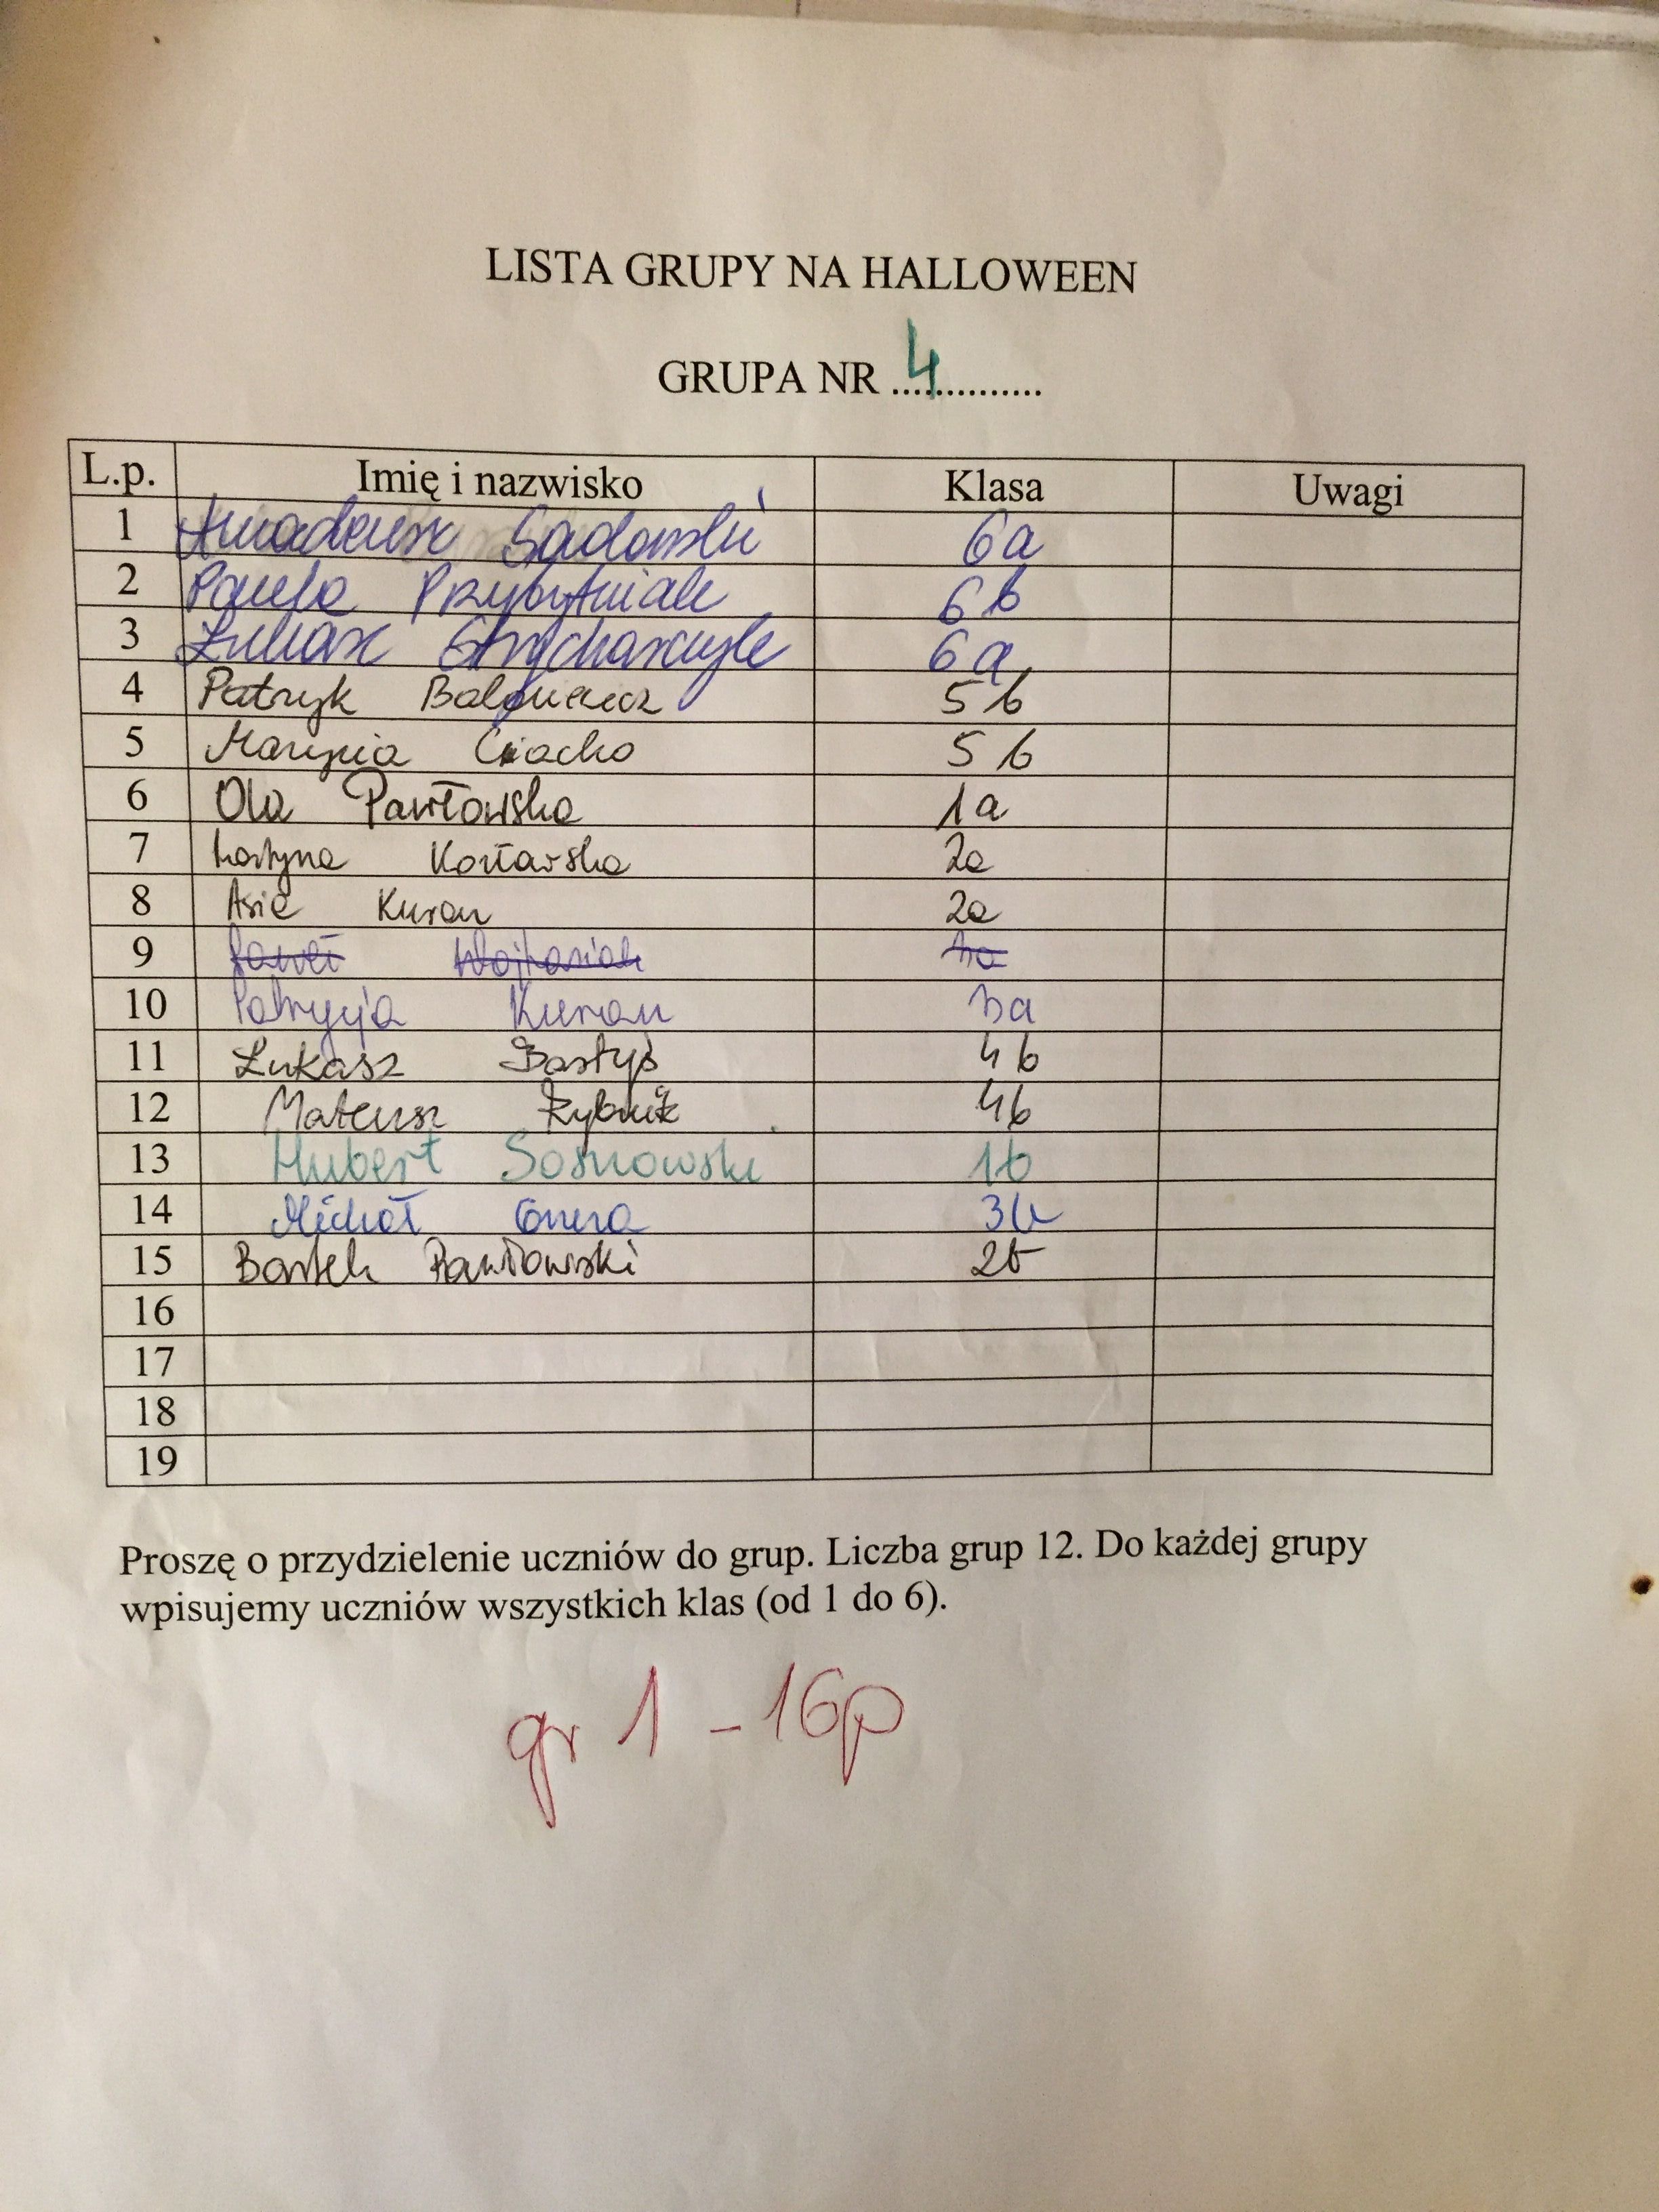 LISTA GRUPY NA HALLOWEEN
GRUPA NR ...4...........
L.p. Imię i nazwisko Klasa Uwagi
1 Amadeusz Sadowski 6a
2 Paula Przybytniak 6b
3 Łukasz Strycharczyk 6a
4 Patryk 5b
5 Marysia Ciacho 5b
6 Ola Pawłowska 1a
7 Kozłowska 2a
8 Asia Kuran 2a
9 Paweł
10 Patrycja Kuran 3a
11 Łukasz Bartyś 4b
12 Mateusz 4b
13 Hubert Sosnowski 1b
14 Michał 3b
15 Bartek Pawłowski 2b
16
17
18
19
Proszę o przydzielenie uczniów do grup. Liczba grup 12. Do każdej grupy
wpisujemy uczniów wszystkich klas (od 1 do 6).
gr 1 - 16p